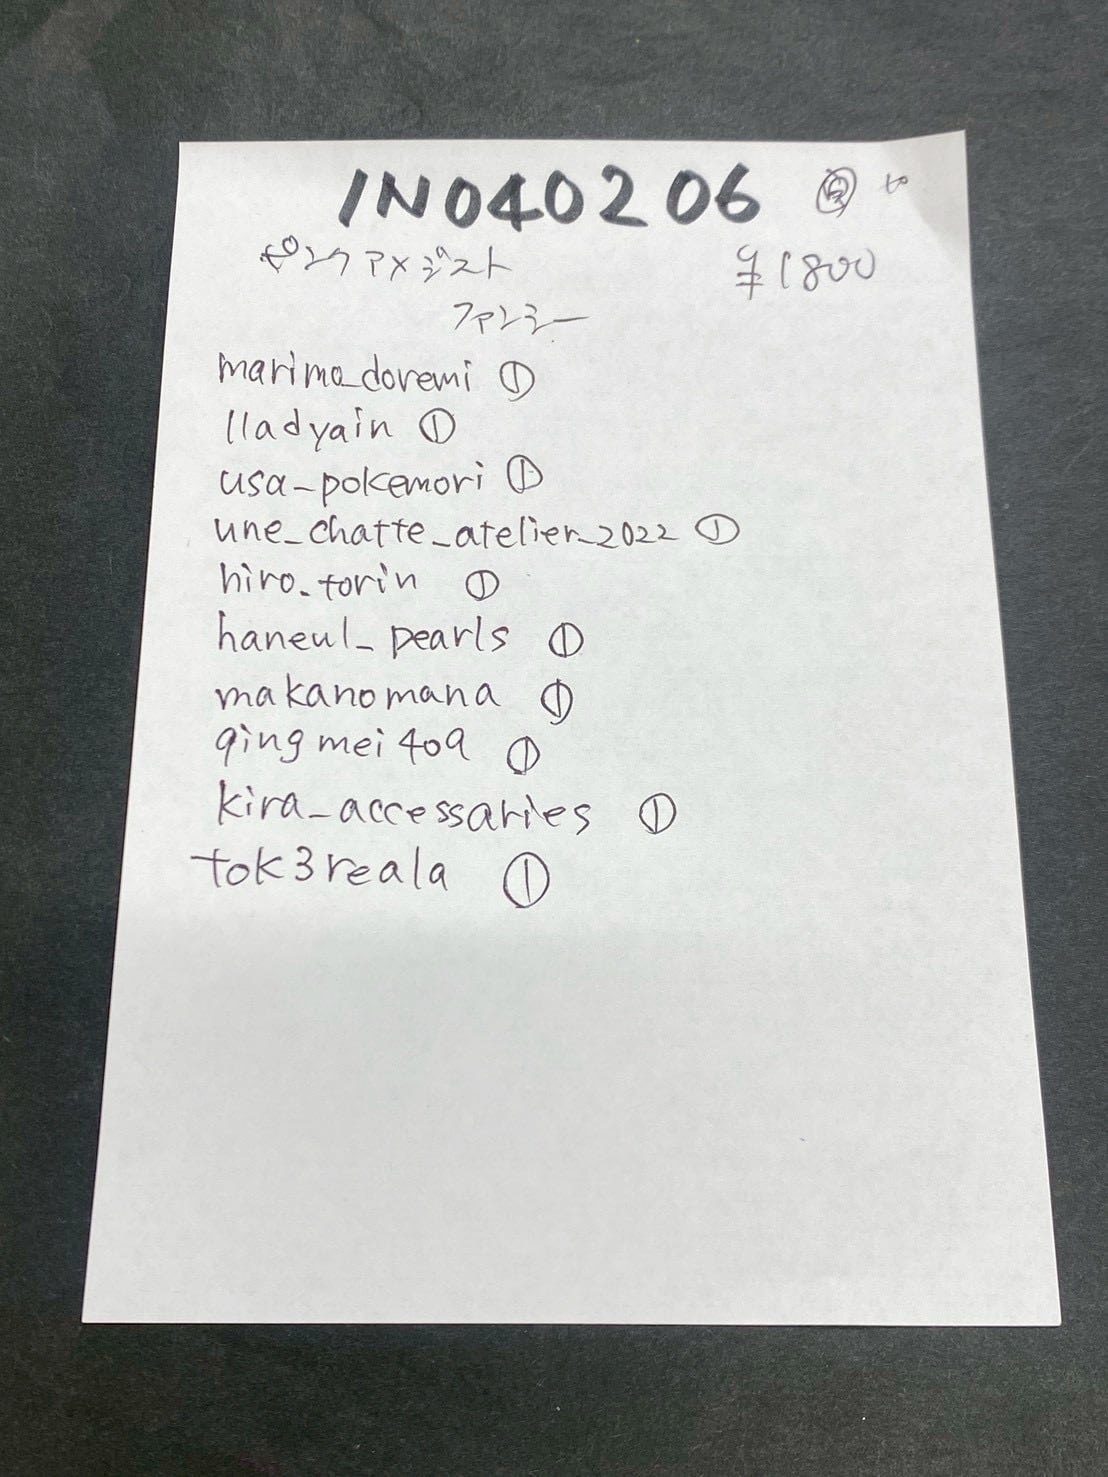 IN040206
ピンクアメジスト ¥1800
ファンシー
marimo_doremi ①
lladyain ①
usa_pokemori ①
une_chatte_atelier_2022 ①
hiro.torin ①
haneul_pearls ①
makanomana ①
qingmei409 ①
kira_accessaries ①
tok3reala ①